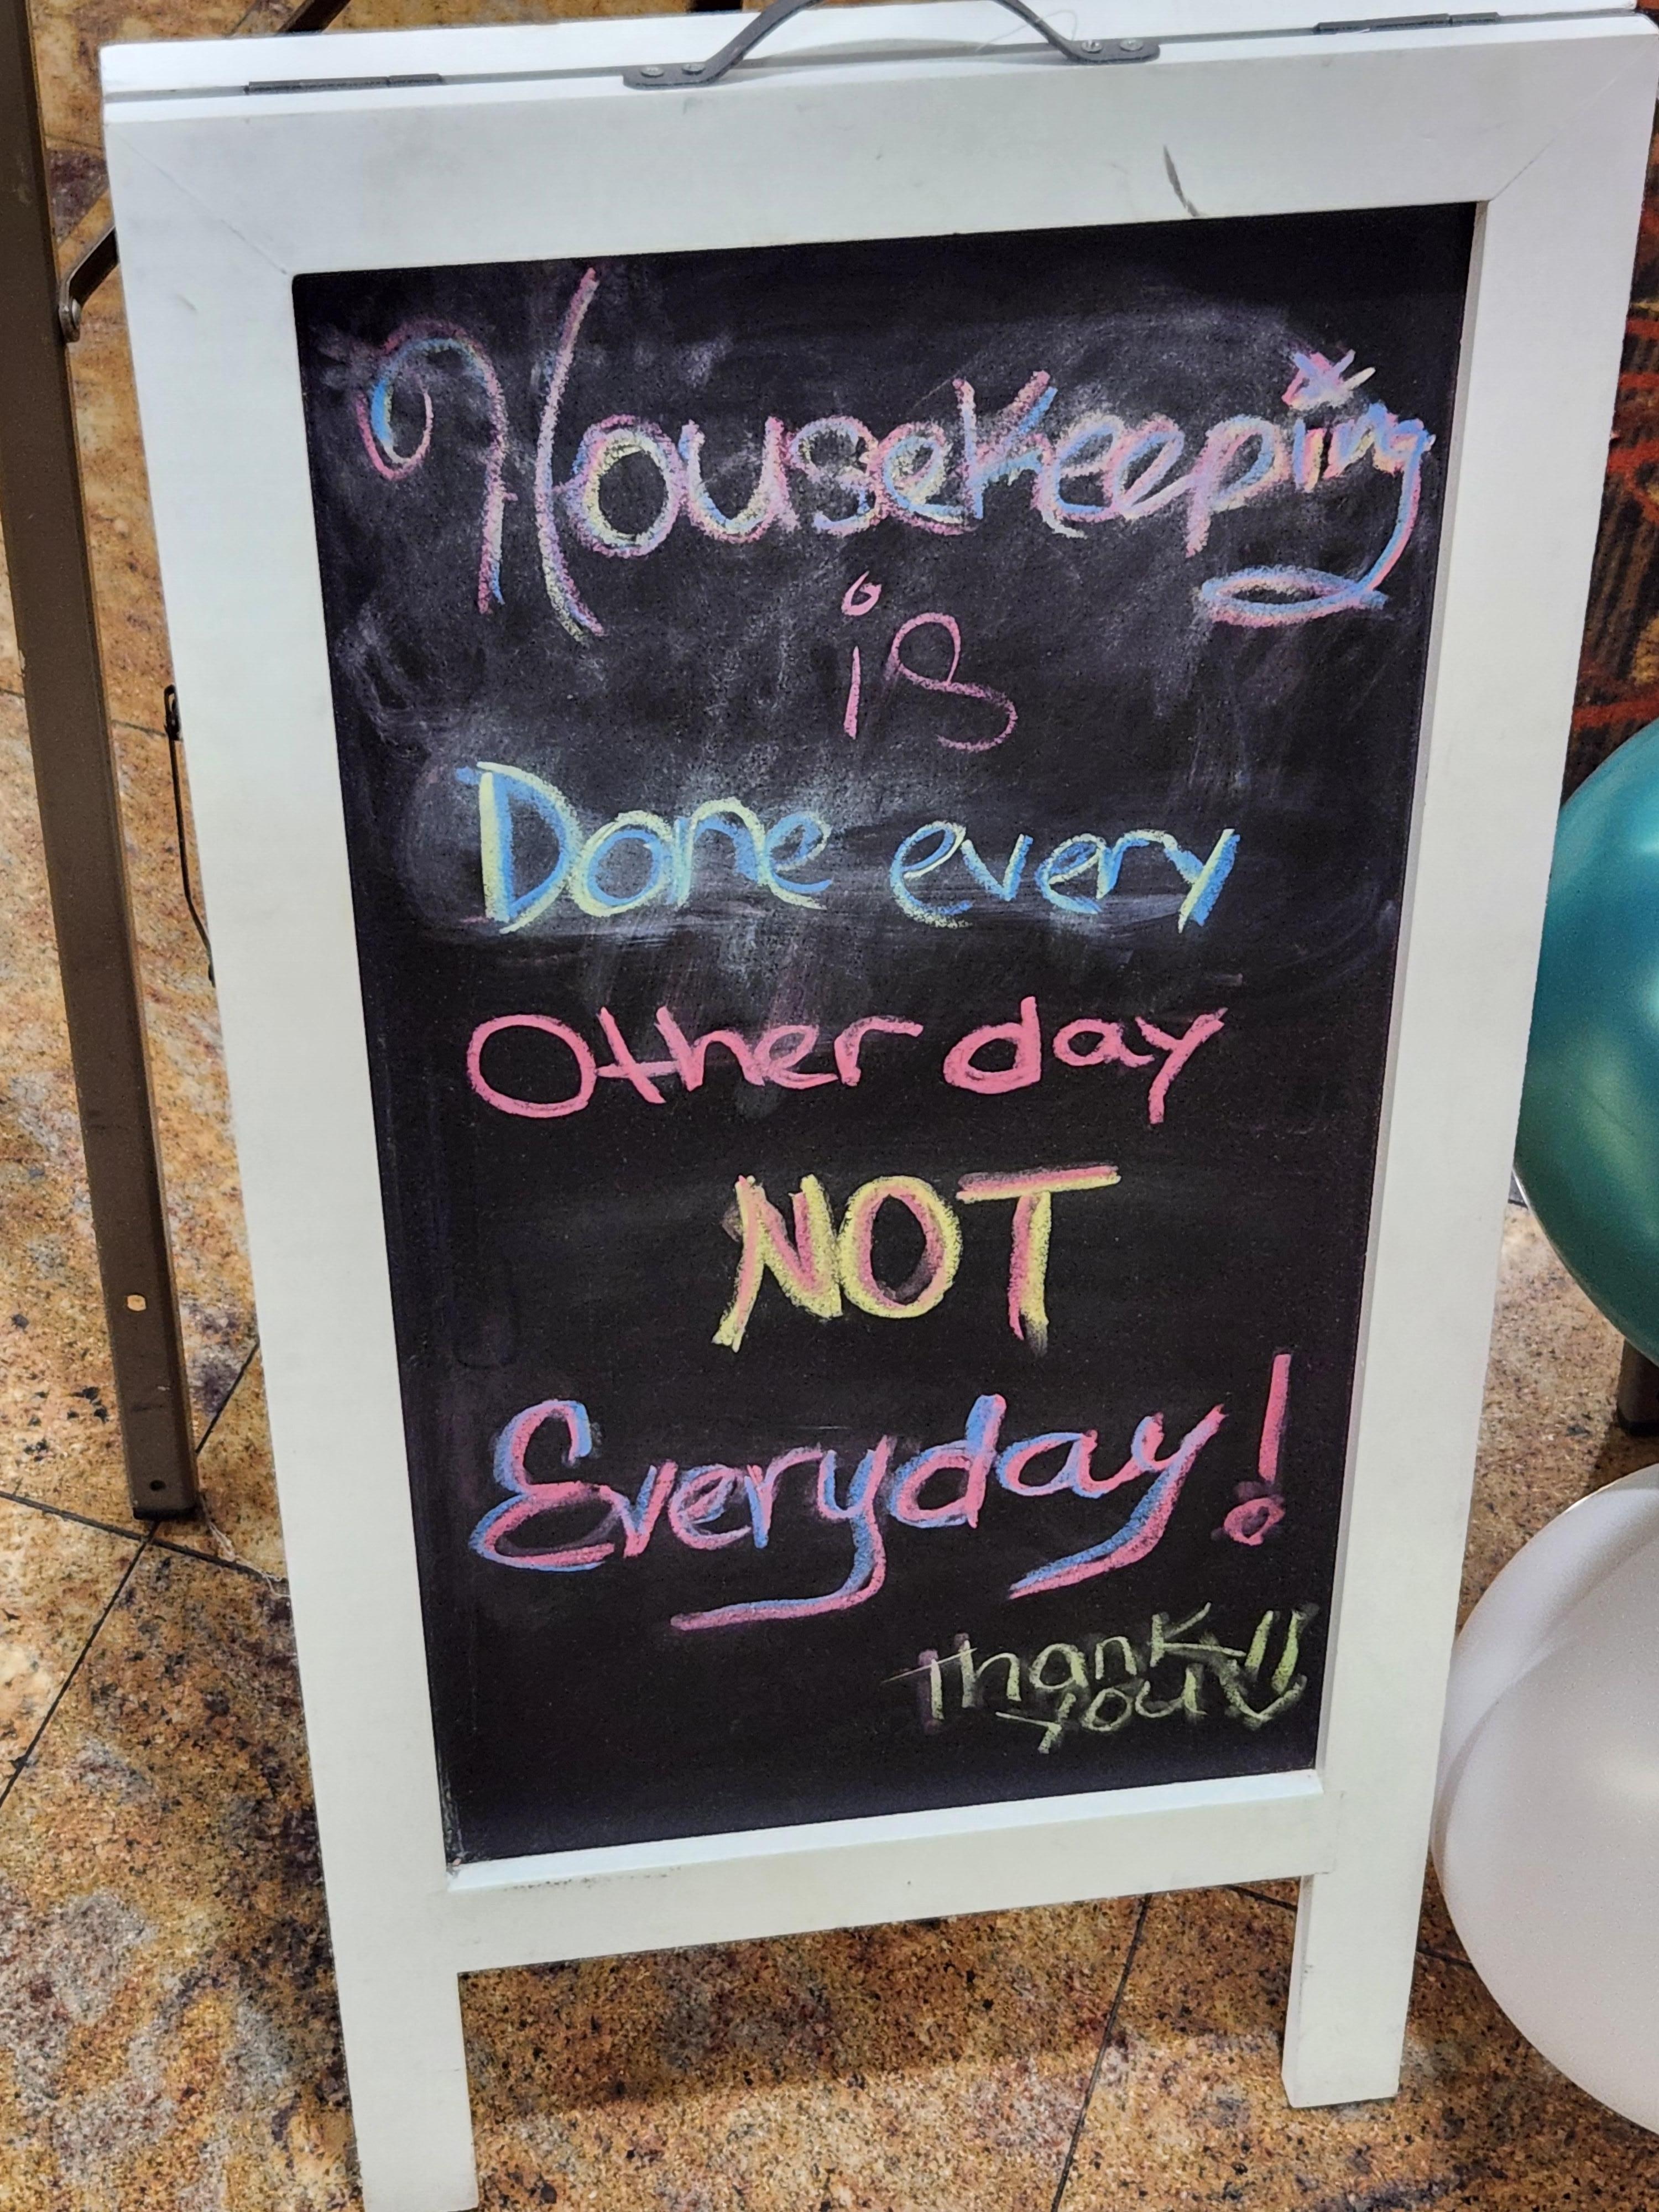 Housekeeping
is
Done every
Other day
NOT
Everyday!
Thank
you!!